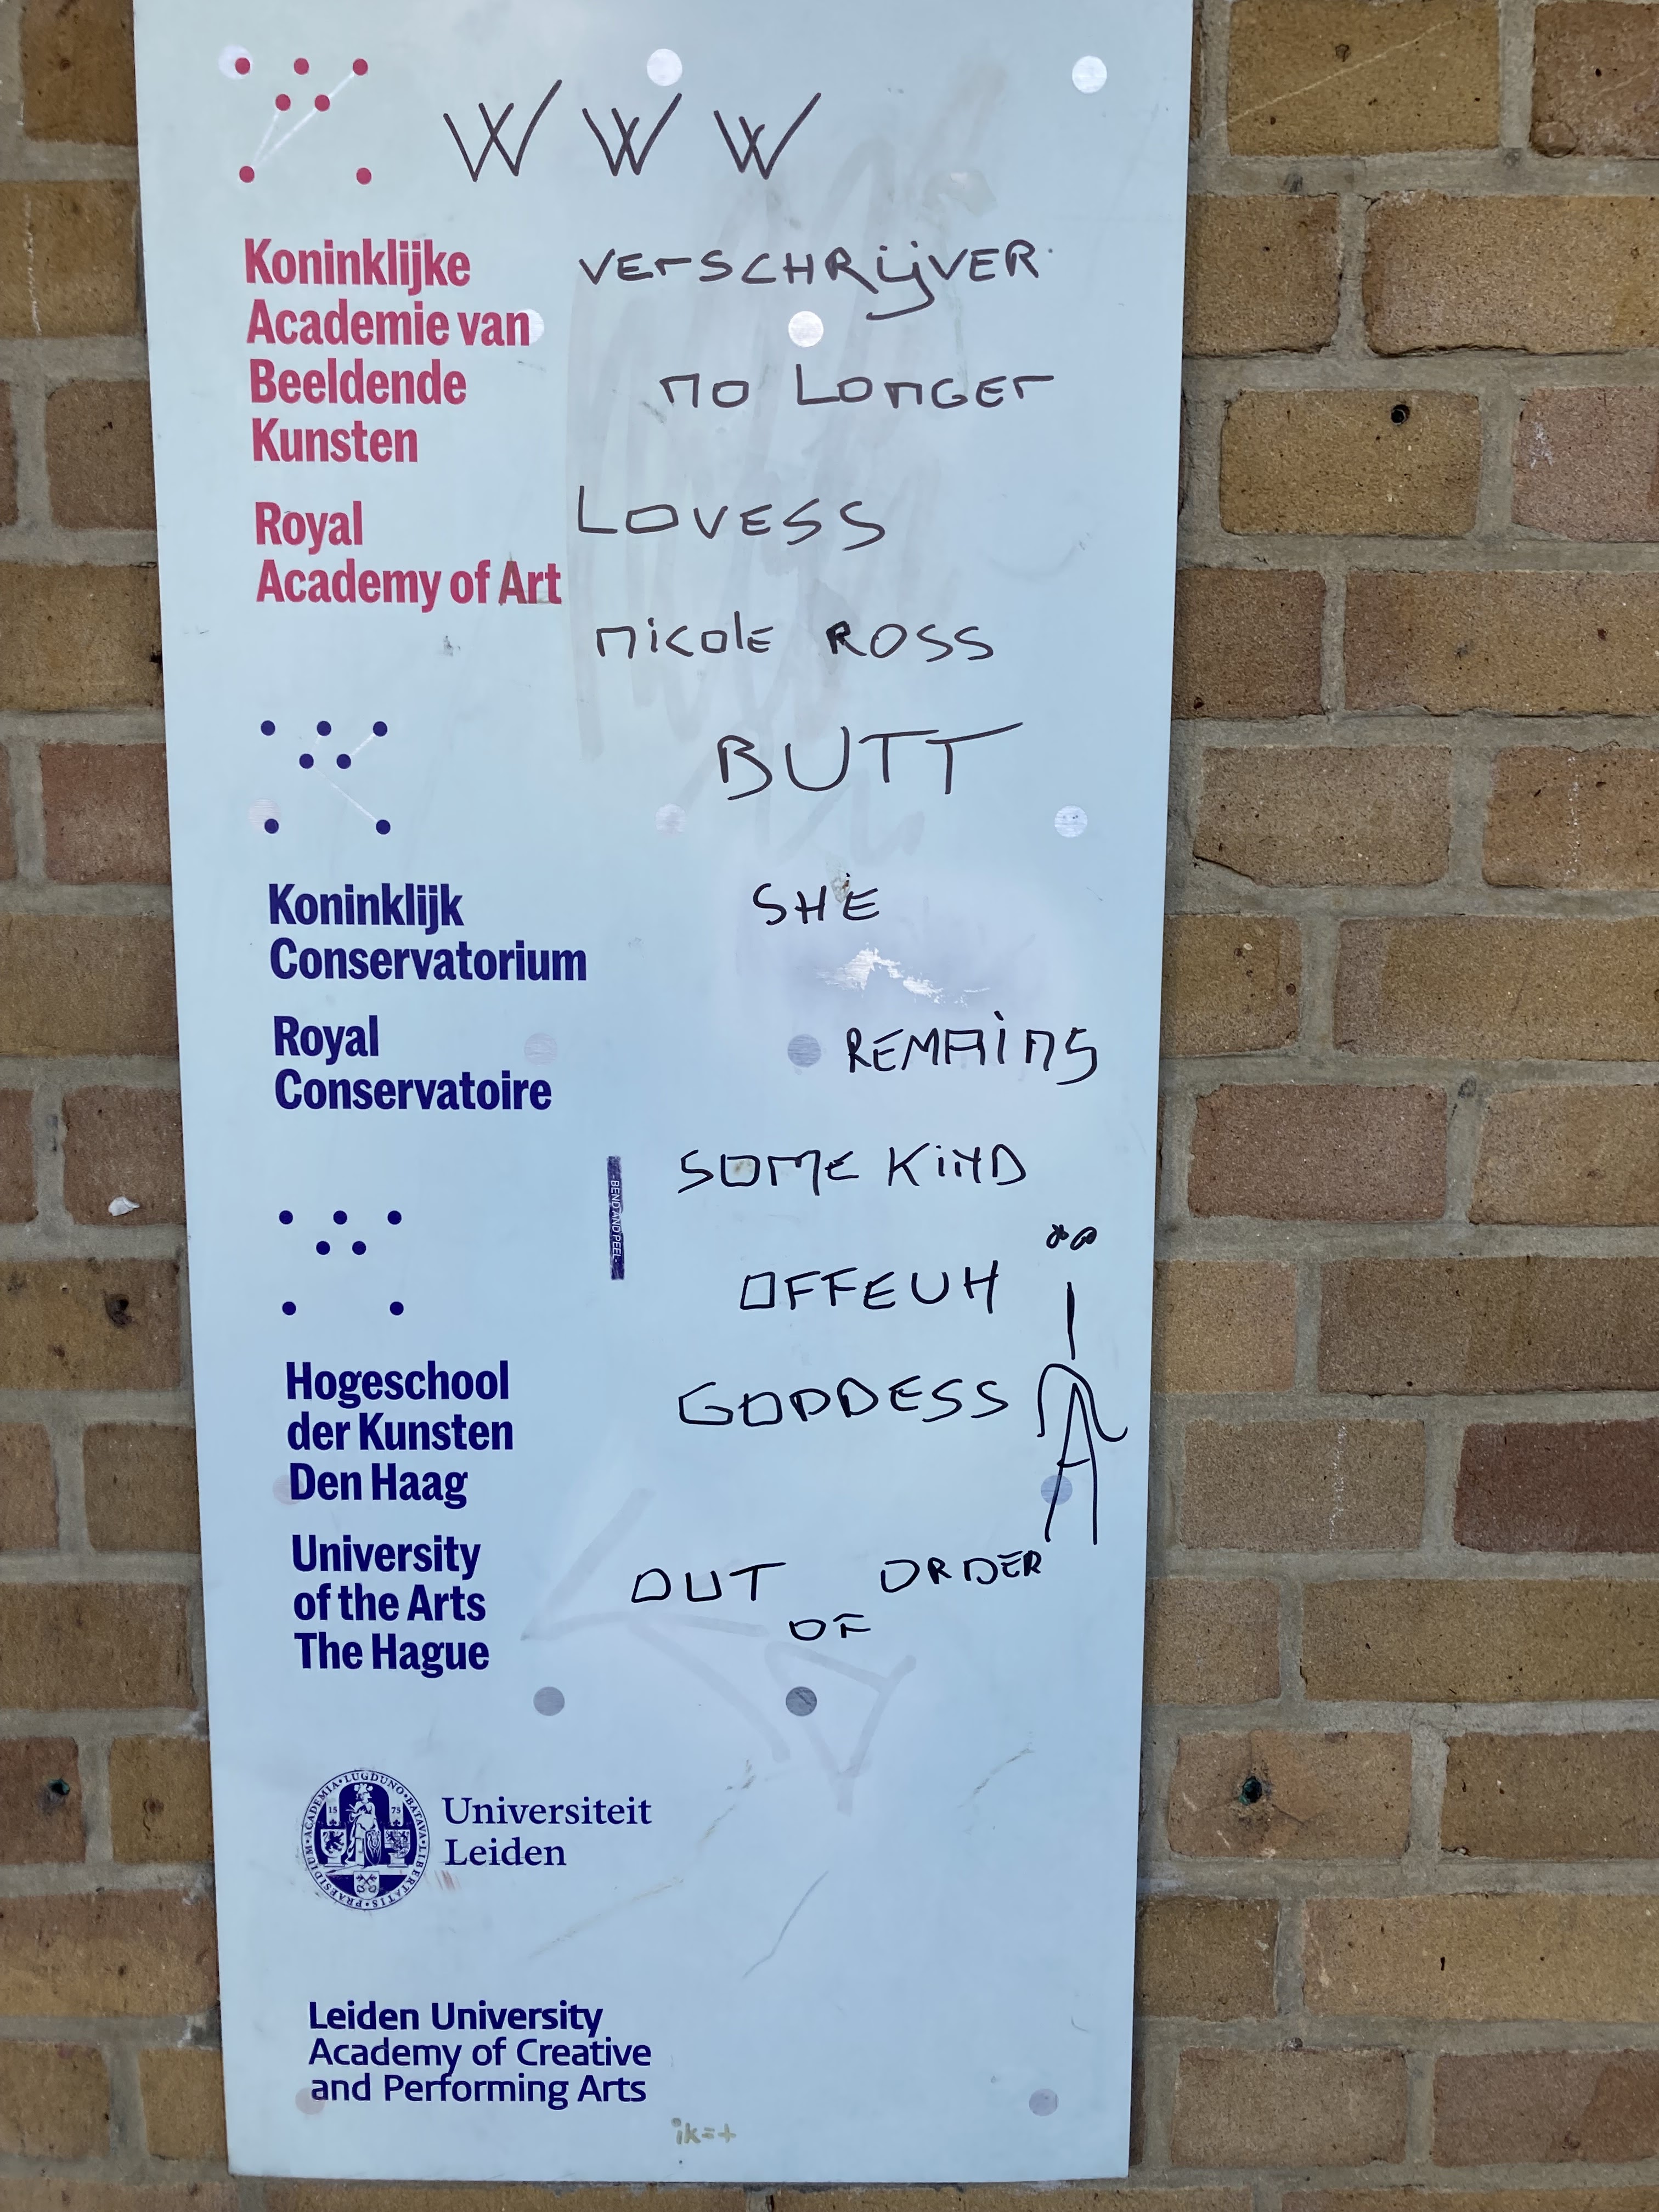 W W W
Koninklijke
Academie van
Beeldende
Kunsten
Royal
Academy of Art
VErSCHRijVER
no LonGEr
LOVESS
nicolE ROSS
BUTT
SHE
REMAinS
SOME KinD
OFFEUH
GODDESS
OUT OF ORDER
Koninklijk
Conservatorium
Royal
Conservatoire
BEND AND PEEL
Hogeschool
der Kunsten
Den Haag
University
of the Arts
The Hague
ACADEMIA·LUGDUNO·BATAVA·LIBERTATIS·PRAESIDIUM
15 75
Universiteit
Leiden
Leiden University
Academy of Creative
and Performing Arts
ik=+